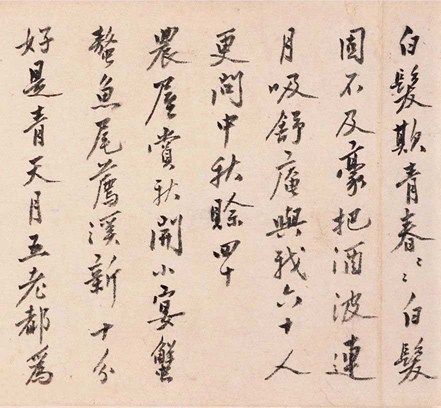 白髮欺青春〻〻白髮
固不及豪把酒波連
月吸舒庵與我六十人
更問中秋賒四十
農屋賞秋開小宴蟹
螯魚尾薦溪新十分
好是青天月五老都為